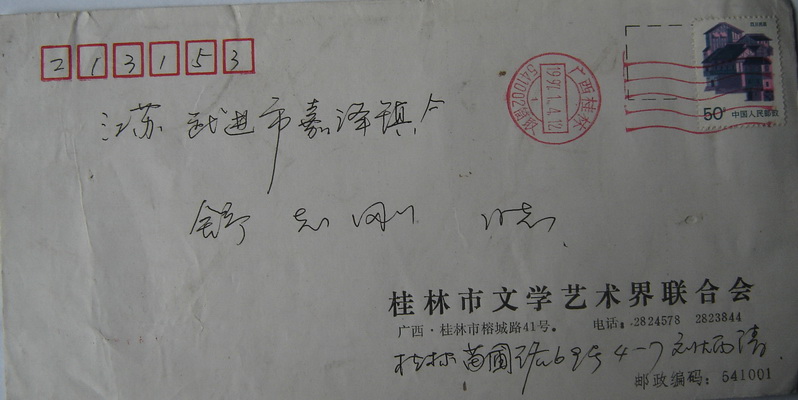 213153
江苏 武进市嘉泽镇
舒志刚 同志
广西桂林
1997.1.4.12
541002
50分 中国人民邮政
桂林市文学艺术界联合会
广西·桂林市榕城路41号。 电话:2824578 2823844
桂林苗圃路69号4-7
邮政编码:541001